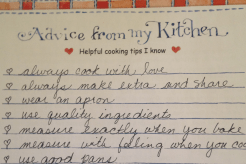 Advice from my Kitchen
Helpful cooking tips I know
always cook with love
always make extra and share
wear an apron
use quality ingredients
measure exactly when you bake
measure with feeling when you co
use good pans